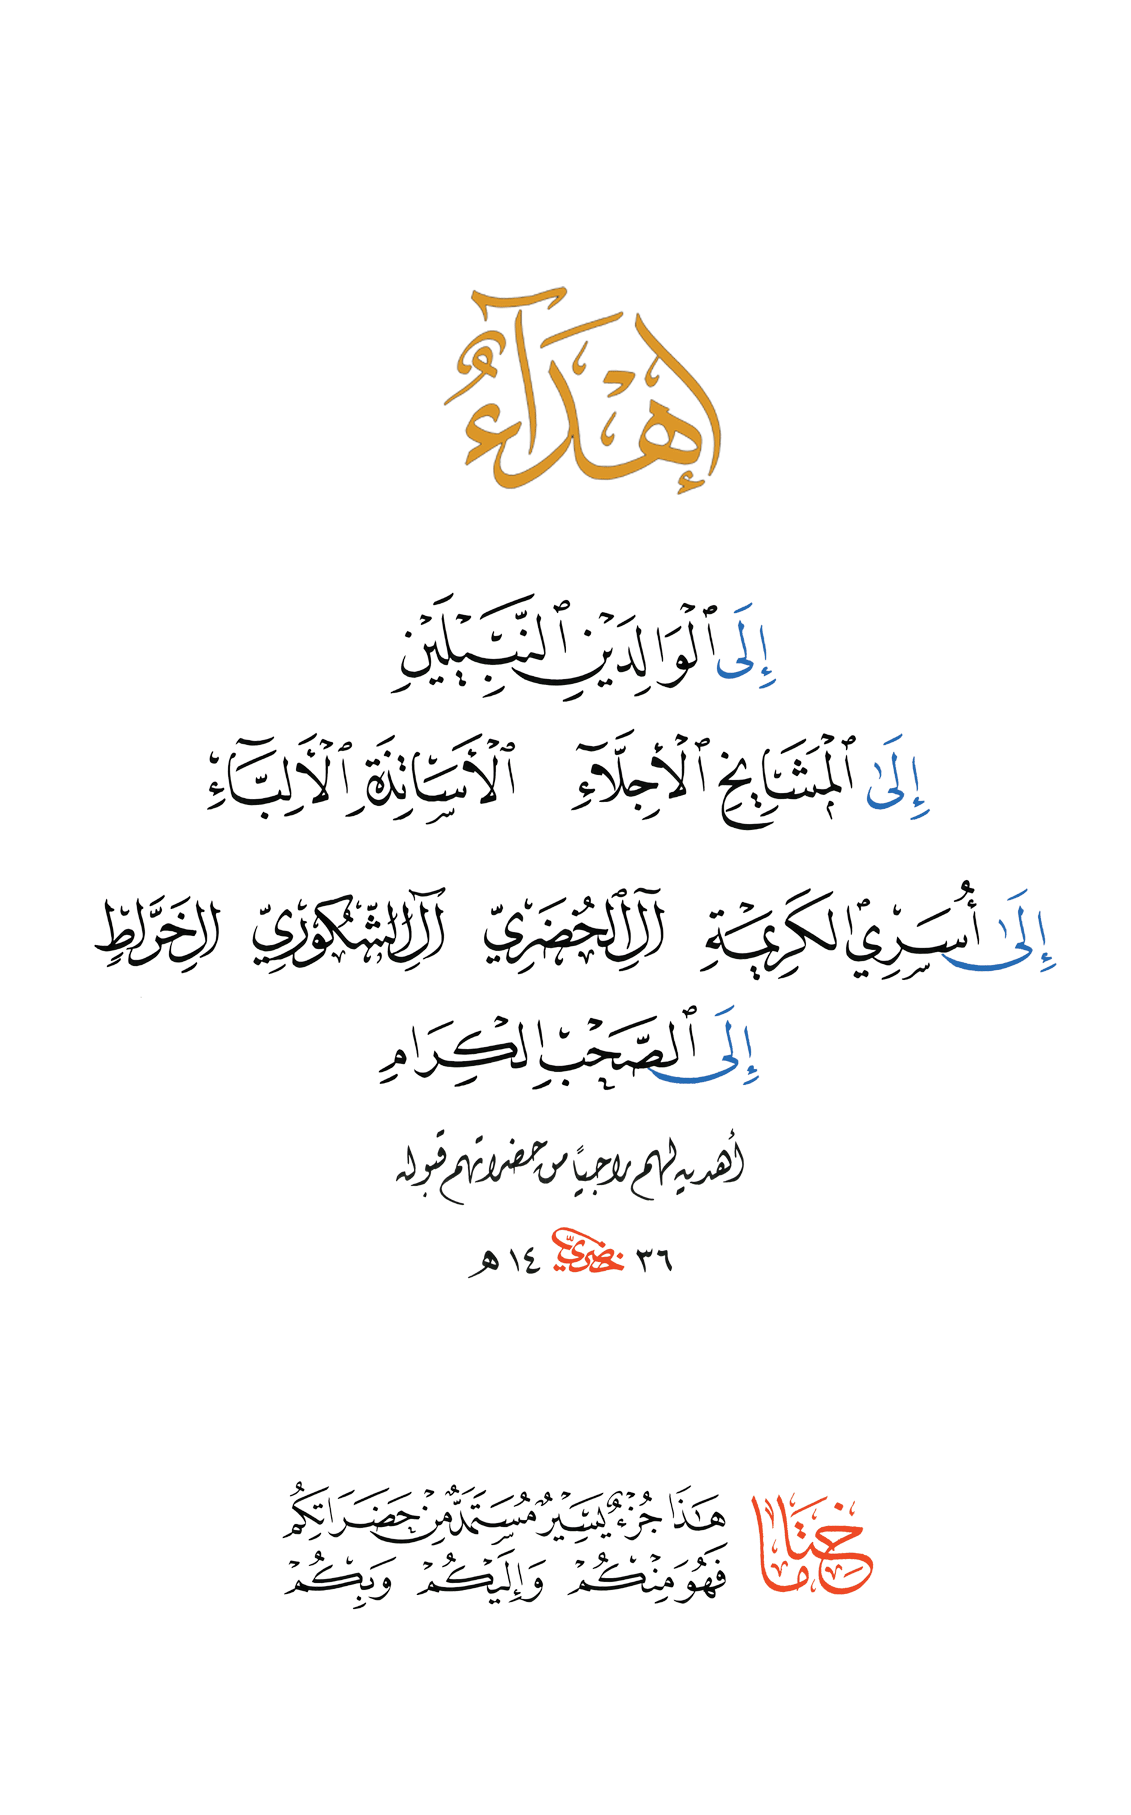 إِهْدَآءٌ
إِلَى ٱلْوَالِدَيْنِ ٱلنَّبِيْلَيْنِ
إِلَىٰ ٱلْمَشَايِخِ ٱلْأَجِلَّآءِ ٱلْأَسَاتِذَةِ ٱلْأَلِبَّآءِ
إِلَىٰ أُسَرِيْ ٱلكَرِيْمَةِ آلِ ٱلْخُضَرِيّ آلِ ٱلشّكُوْرِيّ آلِ خَرَّاطٍ
إِلَى ٱلصَّحْبِ الْكِرَامِ
أهديه لهم راجيًا من حضراتهم قبوله
٣٦ خضريّ ١٤ هـ
خِتَامًا
هَٰذَا جُزْءٌ يَسِيْرٌ مُسْتَمَدٌّ مِنْ حَضَرَاتِكُمْ
فَهُوَ مِنْكُمْ وَإِلَيْكُمْ وَبِكُمْ